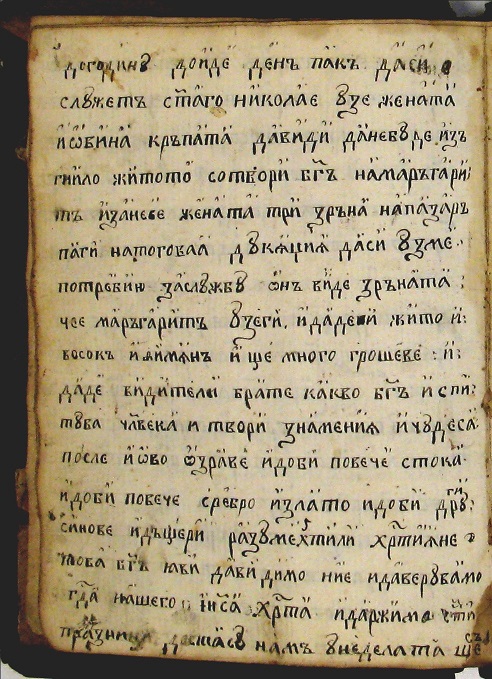 догодинꙋ дойде день пакъ даси
слꙋжетъ ст҃аго николае ꙋзе жената
и҆ѡвина кръпата давиди даневꙋде изъ
гнило житото сотвори бг҃ъ намаръгари
тъ изанесе жената три зръна напазаръ
паги натоговаа дꙋкѧциѧ даси ꙋзме
потребию заслꙋжбꙋ ѻнъ виде зръната
чее маръгаритъ ꙋзеги, идадеѝ жито и
восокъ и҆ѳимѧнъ и҆ ще много грошеве и҆
даде видители брате какво бг҃ъ испи
тꙋва чл҃века и твори знамениѧ ичꙋдеса
после и҆ѡво ѿздраве идоби повече стока
идоби повече сребро излато идоби дрꙋги
синове идъщери разꙋмехтили хрт҃иѧне
това бг҃ъ юви давидимо ние идаверꙋвамо
гд҃а нашего ис҃а хрт҃а идаржимо ст҃и
празници намъ ꙋнеделата ще